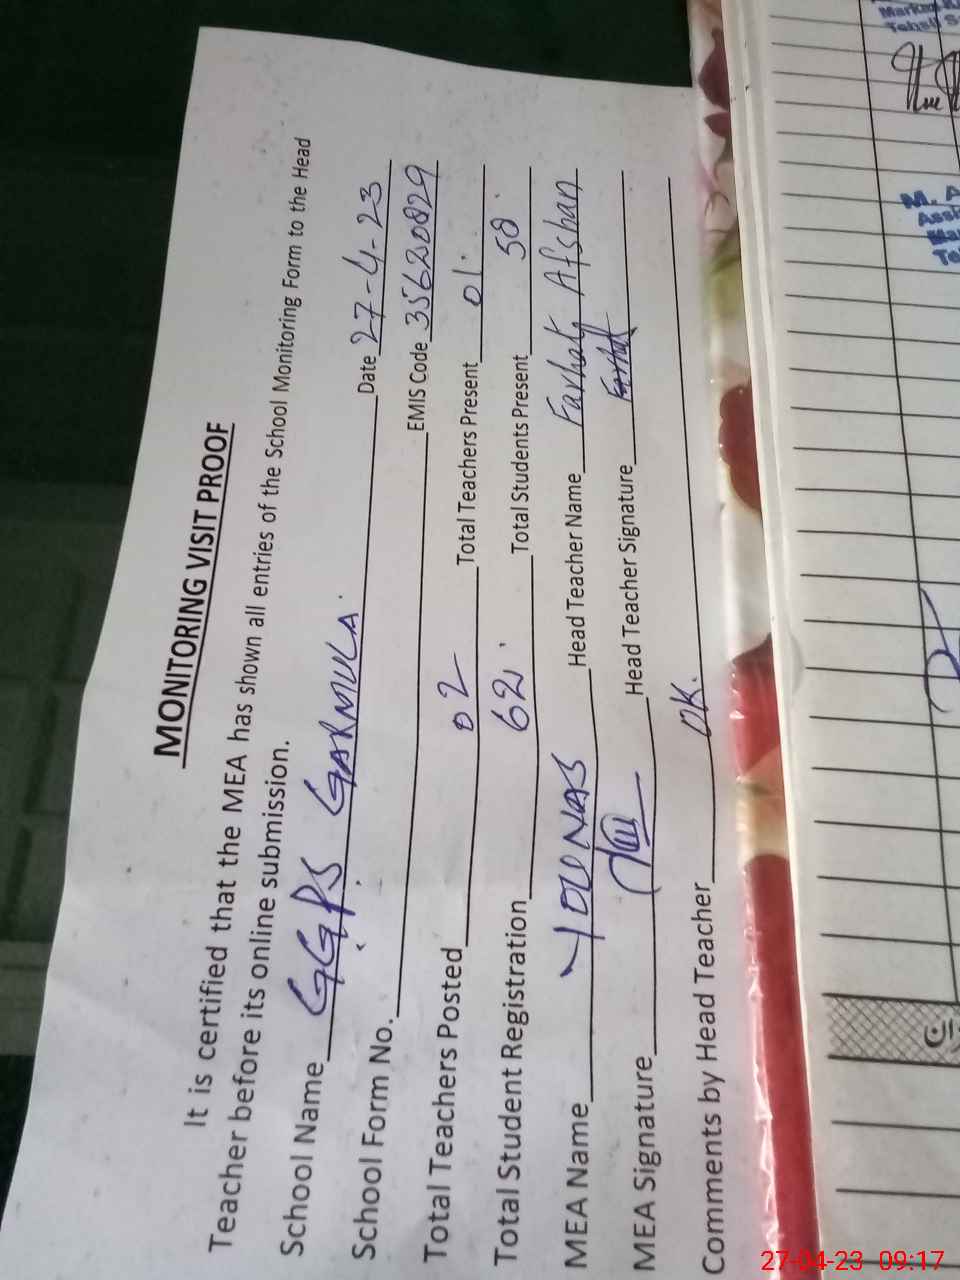 MONITORING VISIT PROOF
It is certified that the MEA has shown all entries of the School Monitoring Form to the Head
Teacher before its online submission.
School Name GGPS GARMULA. Date 27-4-23
School Form No. EMIS Code 35620829
Total Teachers Posted 02 Total Teachers Present 01.
Total Student Registration 62. Total Students Present 58.
MEA Name YOUNAS Head Teacher Name Farhat Afshan
MEA Signature Head Teacher Signature Farhat
Comments by Head Teacher OK.
M. A
27-04-23 09:17